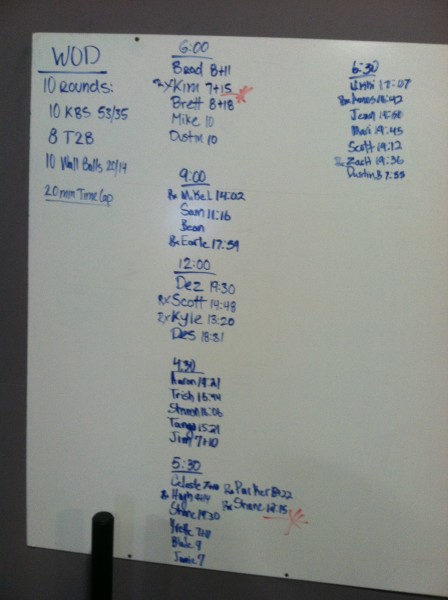 WOD
10 Rounds:
10 KBS 53/35
8 T2B
10 Wall Balls 20/14
20 min Time Cap
6:00
Brad 8+11
Rx Kim 7+15
Brett 8+18
Mike 10
Dustin 10
9:00
Rx Mikel 14:02
Sam 11:16
Bean
Rx Earle 17:59
12:00
Dez 19:30
Rx Scott 14:48
Rx Kyle 13:20
Des 18:31
4:30
Aaron 19:21
Trish
Sharon 16:06
Tanya 15:21
Jim 7+10
5:30
Celeste
Rx Hugh
Shane 19:30
Yvette 7+11
Blake 9
Jamie 7
Rx Parker
Rx Shane
6:30
12:07
16:42
Jean
Mari 19:45
Scott 19:12
Zach 19:36
Dustin B